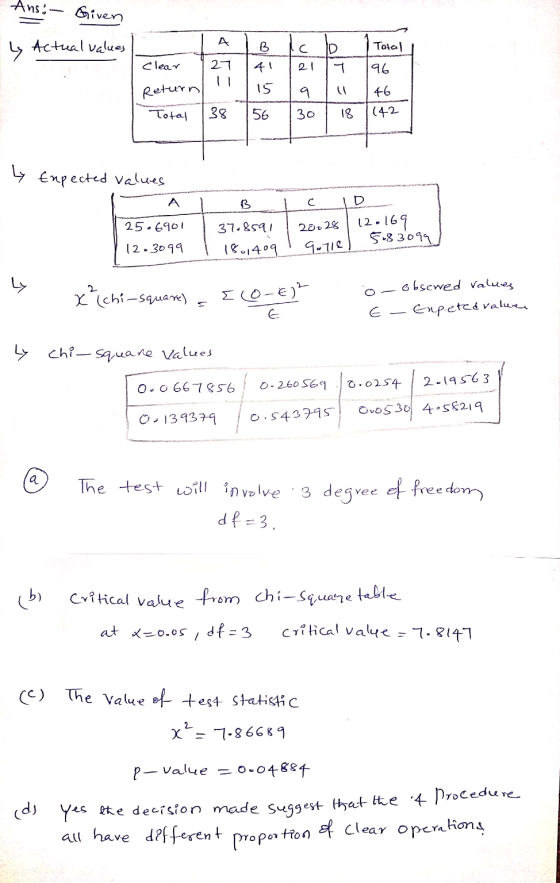 Ans:- Given
↳ Actual values
A B C D Total
Clear 27 41 21 7 96
Return 11 15 9 11 46
Total 38 56 30 18 142
↳ Expected values
A B C D
25.6901 37.8591 20.28 12.169
12.3099 18.1409 9.718 5.83099
↳ x²(chi-square) = Σ(O-E)² / E
O - Observed values
E - Expeted values
↳ chi-square values
0.0667856 0.260569 0.0254 2.19563
0.139379 0.543795 0.0530 4.58219
(a) The test will involve 3 degree of freedom
df = 3.
(b) Critical value from chi-square table
at α=0.05, df=3 critical value = 7.8147
(c) The value of test statistic
x² = 7.86689
p-value = 0.04884
(d) yes the decision made suggest that the 4 Procedure
all have different proportion of clear operations